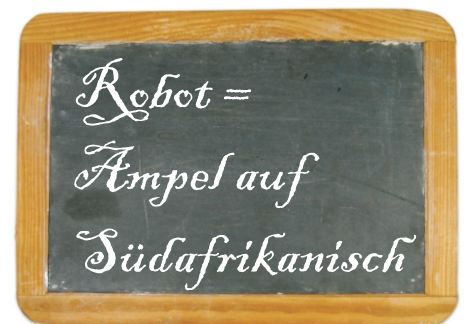 Robot =
Ampel auf
Südafrikanisch